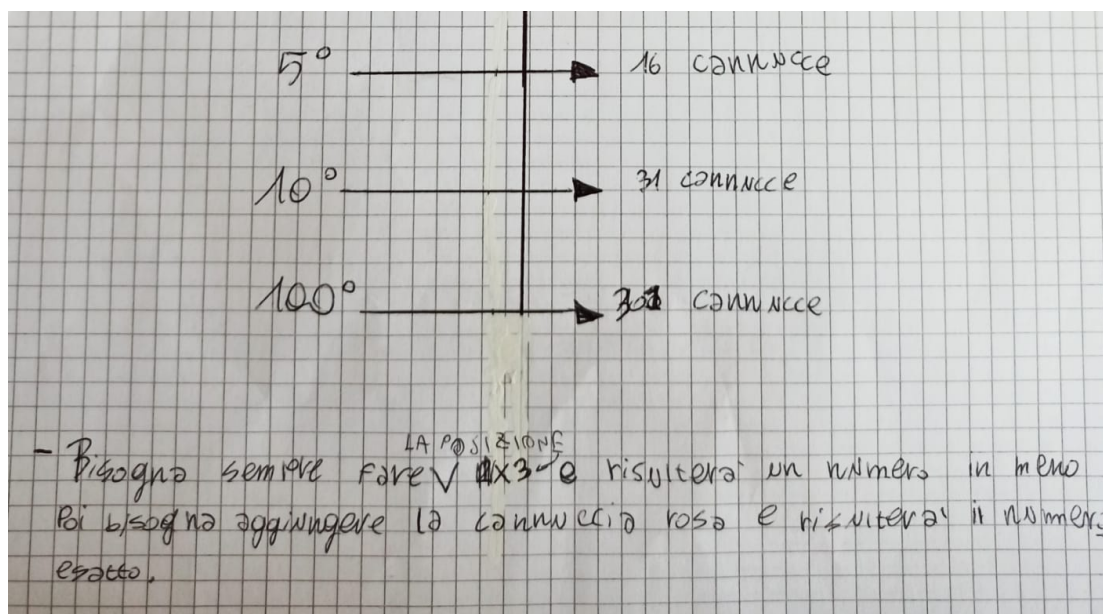 5° 16 cannucce
10° 31 cannucce
100° 301 cannucce
LA POSIZIONE
- Bisogna sempre fare √ x3 e risulterà un numero in meno
Poi bisogna aggiungere la cannuccia rosa e risulterà il numero
esatto.